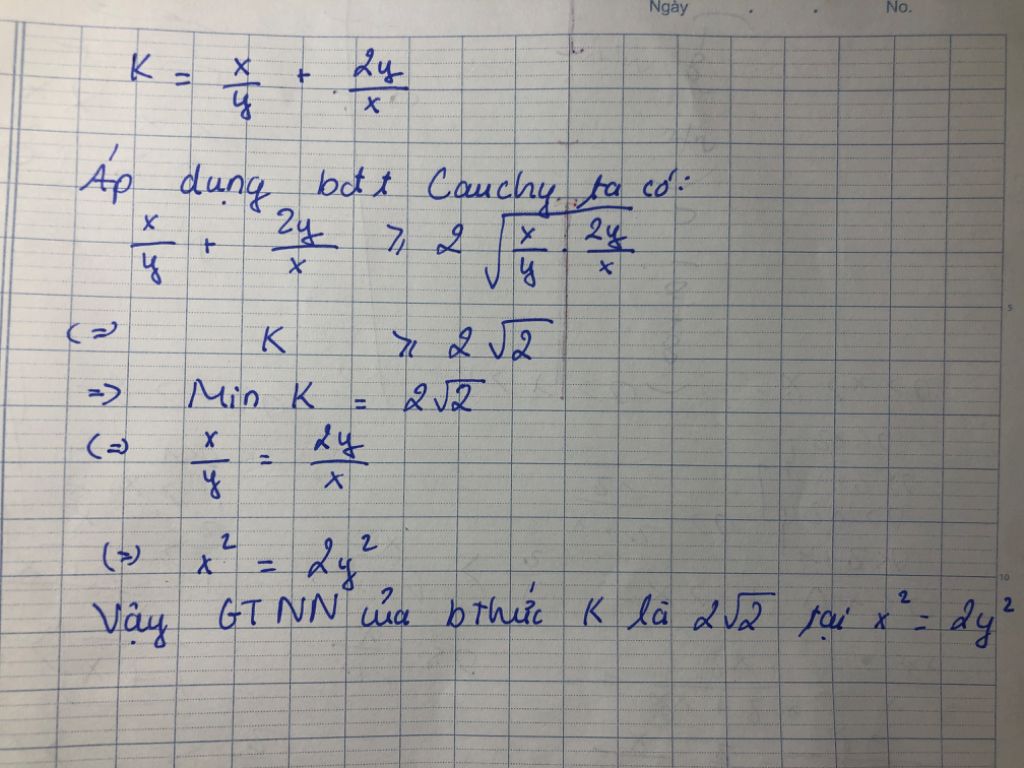 Ngày . . No.
K = x/y + 2y/x
Áp dụng bđt Cauchy ta có:
x/y + 2y/x ≥ 2 √(x/y . 2y/x)
(=) K ≥ 2√2
=> Min K = 2√2
(=) x/y = 2y/x
(=) x² = 2y²
Vậy GTNN của bthức K là 2√2 tại x² = 2y²
5
10